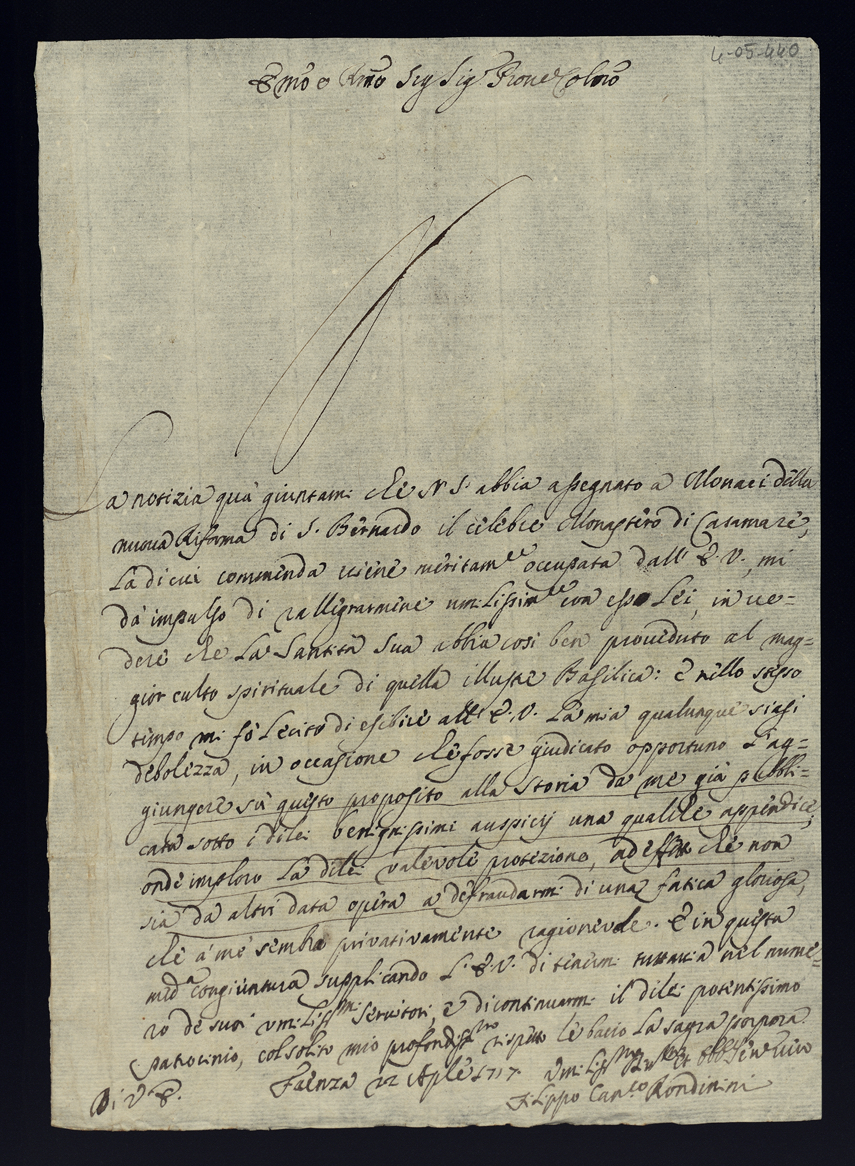 4-05-440
Emo e Rmo Sig Sig Prone Colmo
La notizia quà giuntami che N S. abbia assegnato a Monaci della
nuova Riforma di S. Bernardo il celebre Monastero di Casamare,
la di cui commenda viene meritamte occupata dall' E. V., mi
dà impulso di rallegrarmene umilissimte con esso Lei, in ve=
dere che La Santità Sua abbia così ben proveduto al mag=
gior culto spirituale di quella illustre Basilica: e nello stesso
tempo mi fò Lecito di esibire all' E. V. La mia qualunque siasi
debolezza, in occasione che fosse giudicato opportuno L'ag=
giungere sù questo proposito alla Storia da me già pubbli=
cata sotto i dilei benignissimi auspicij una qualche appendice,
onde imploro La dilei valevole protezione, ad effetto che non
sia da altri data opera a defraudarmi di una fatica gloriosa,
che à me sembra privativamente ragionevole. E in questa
meda congiuntura supplicando L. E. V. di tenermi tuttavia nel nume=
ro de suoi umilissmi Servitori, e di continuarmi il dilei potentissimo
patrocinio, col solito mio profondissmo rispetto le bacio La sagra porpora.
Di V. E. Faenza 22 Aple 1717. Umilissmo et obbl Serv
Filippo Canco Rondinini